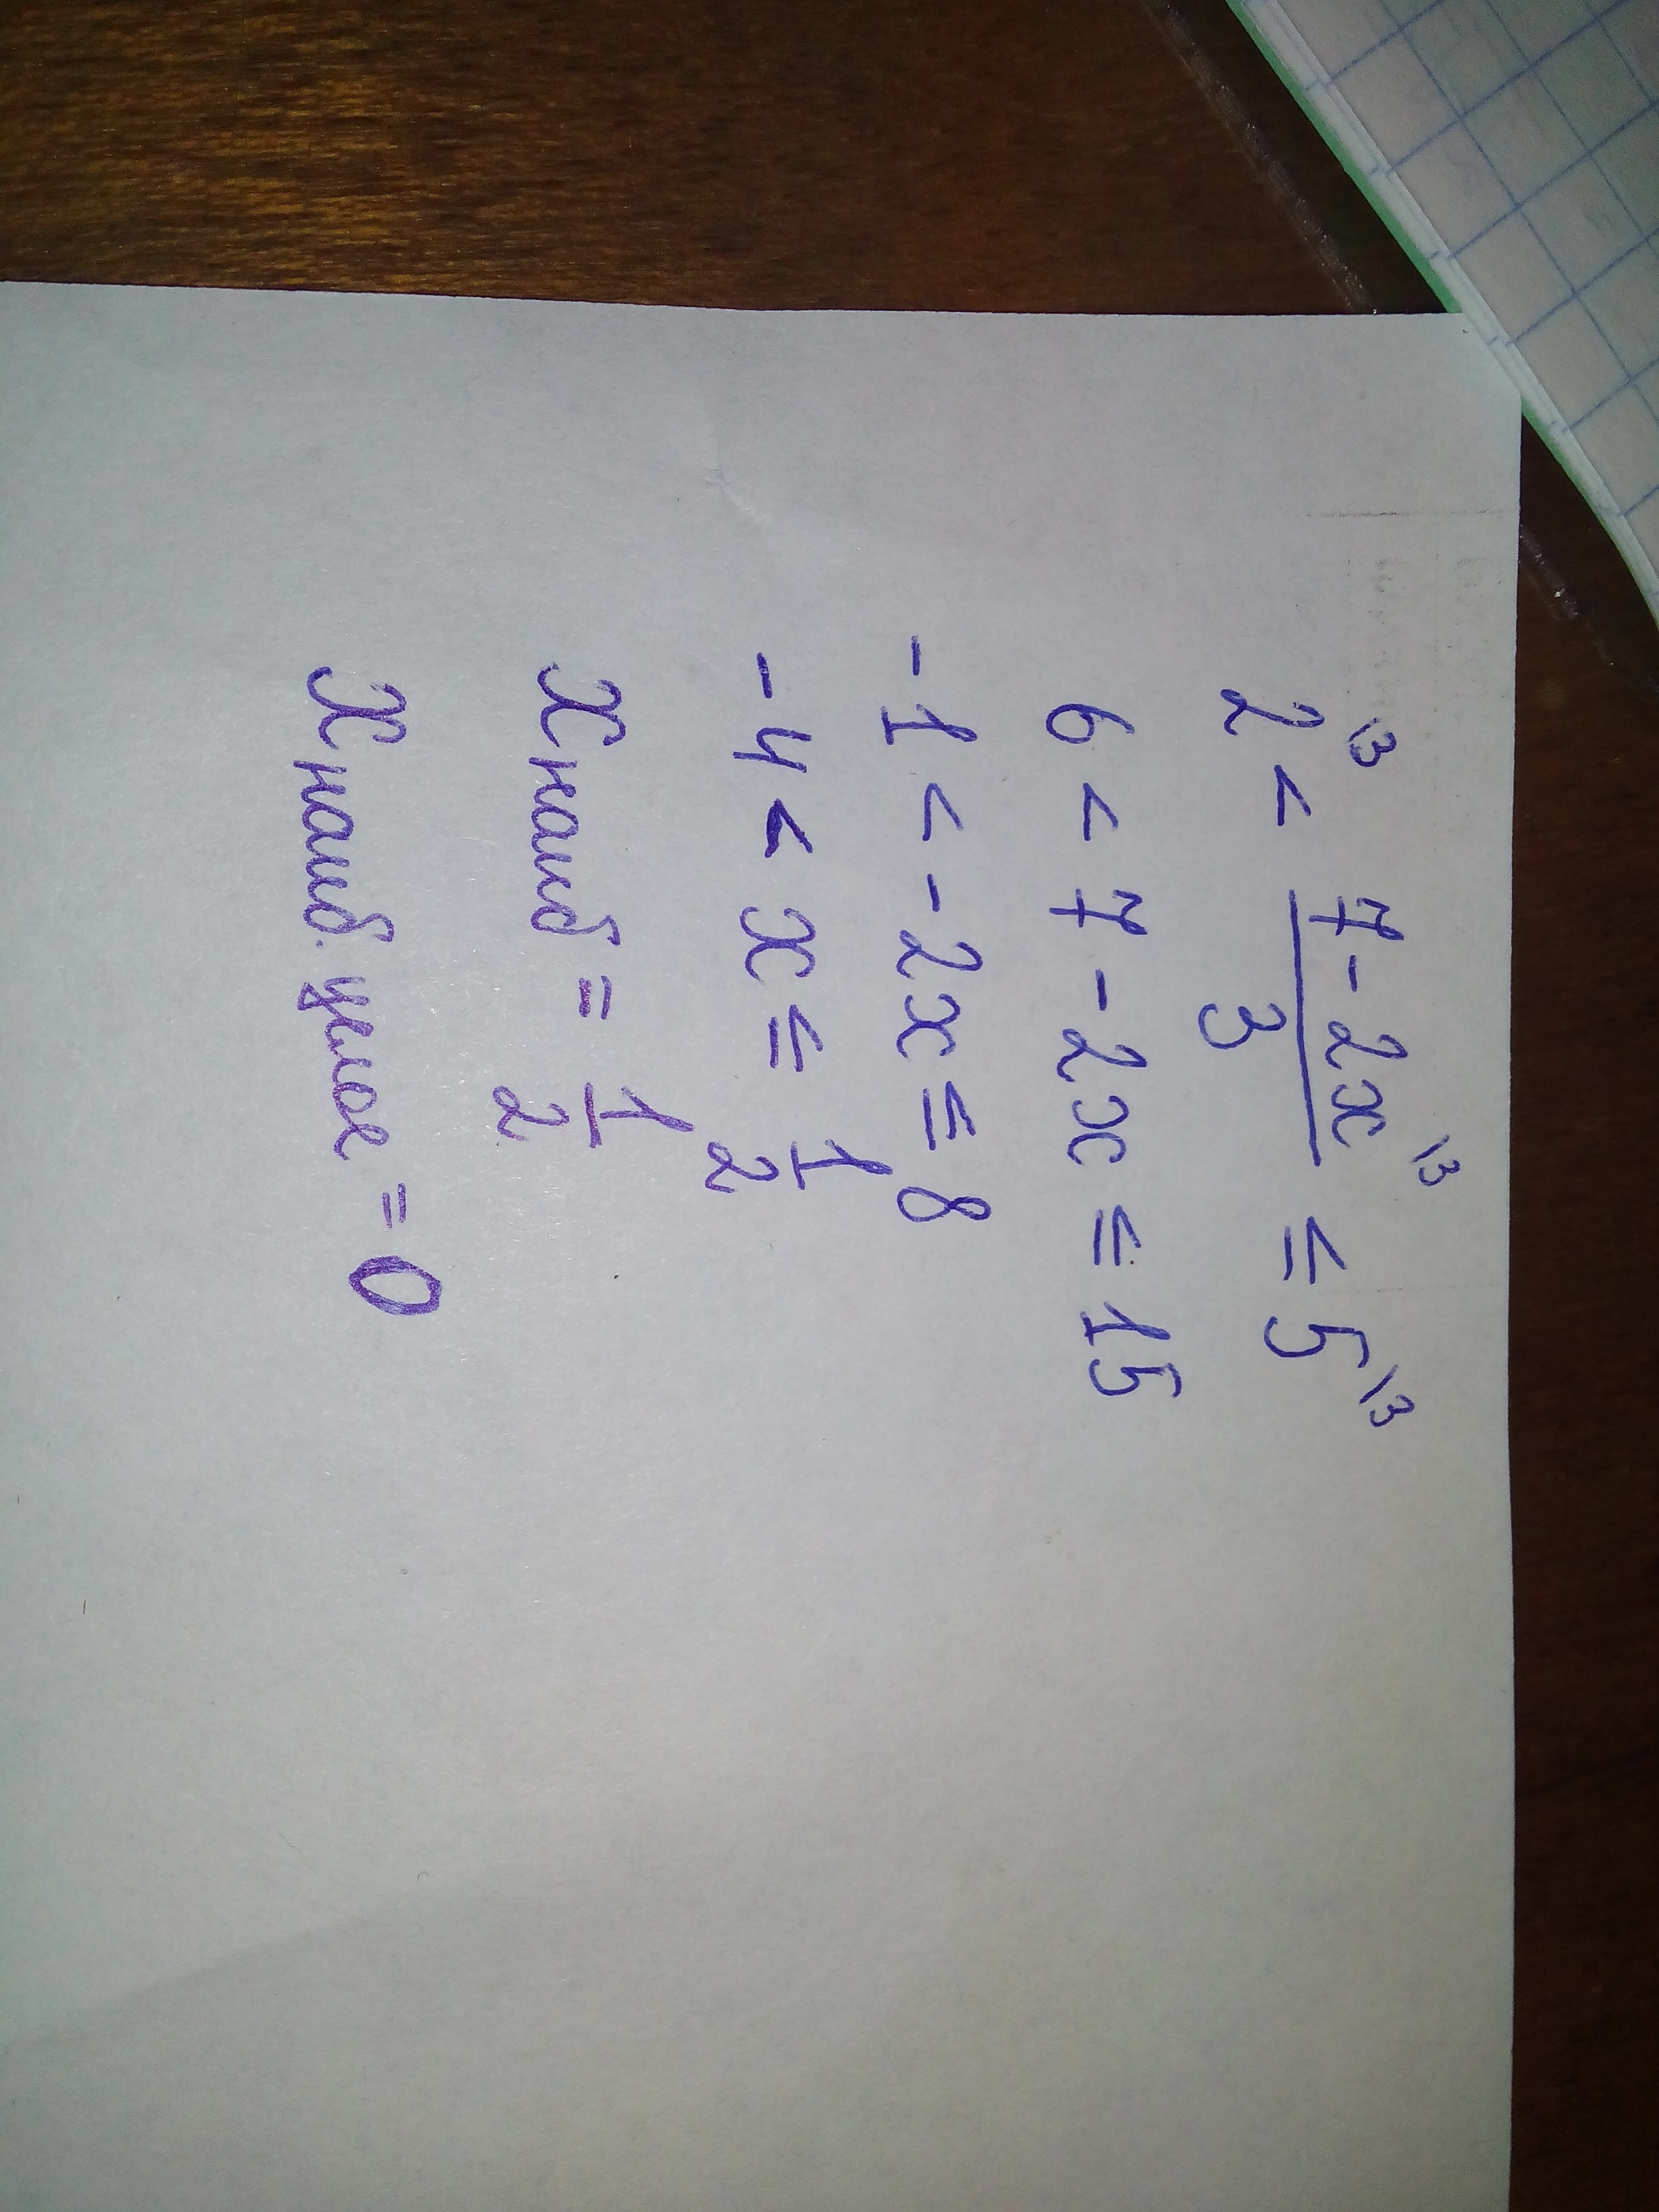 2\3 < 7-2x/3 \3 ≤ 5\3
6 < 7 - 2x ≤ 15
-1 < -2x ≤ 8
-4 < x ≤ 1/2
x наиб = 1/2
x наиб. целое = 0